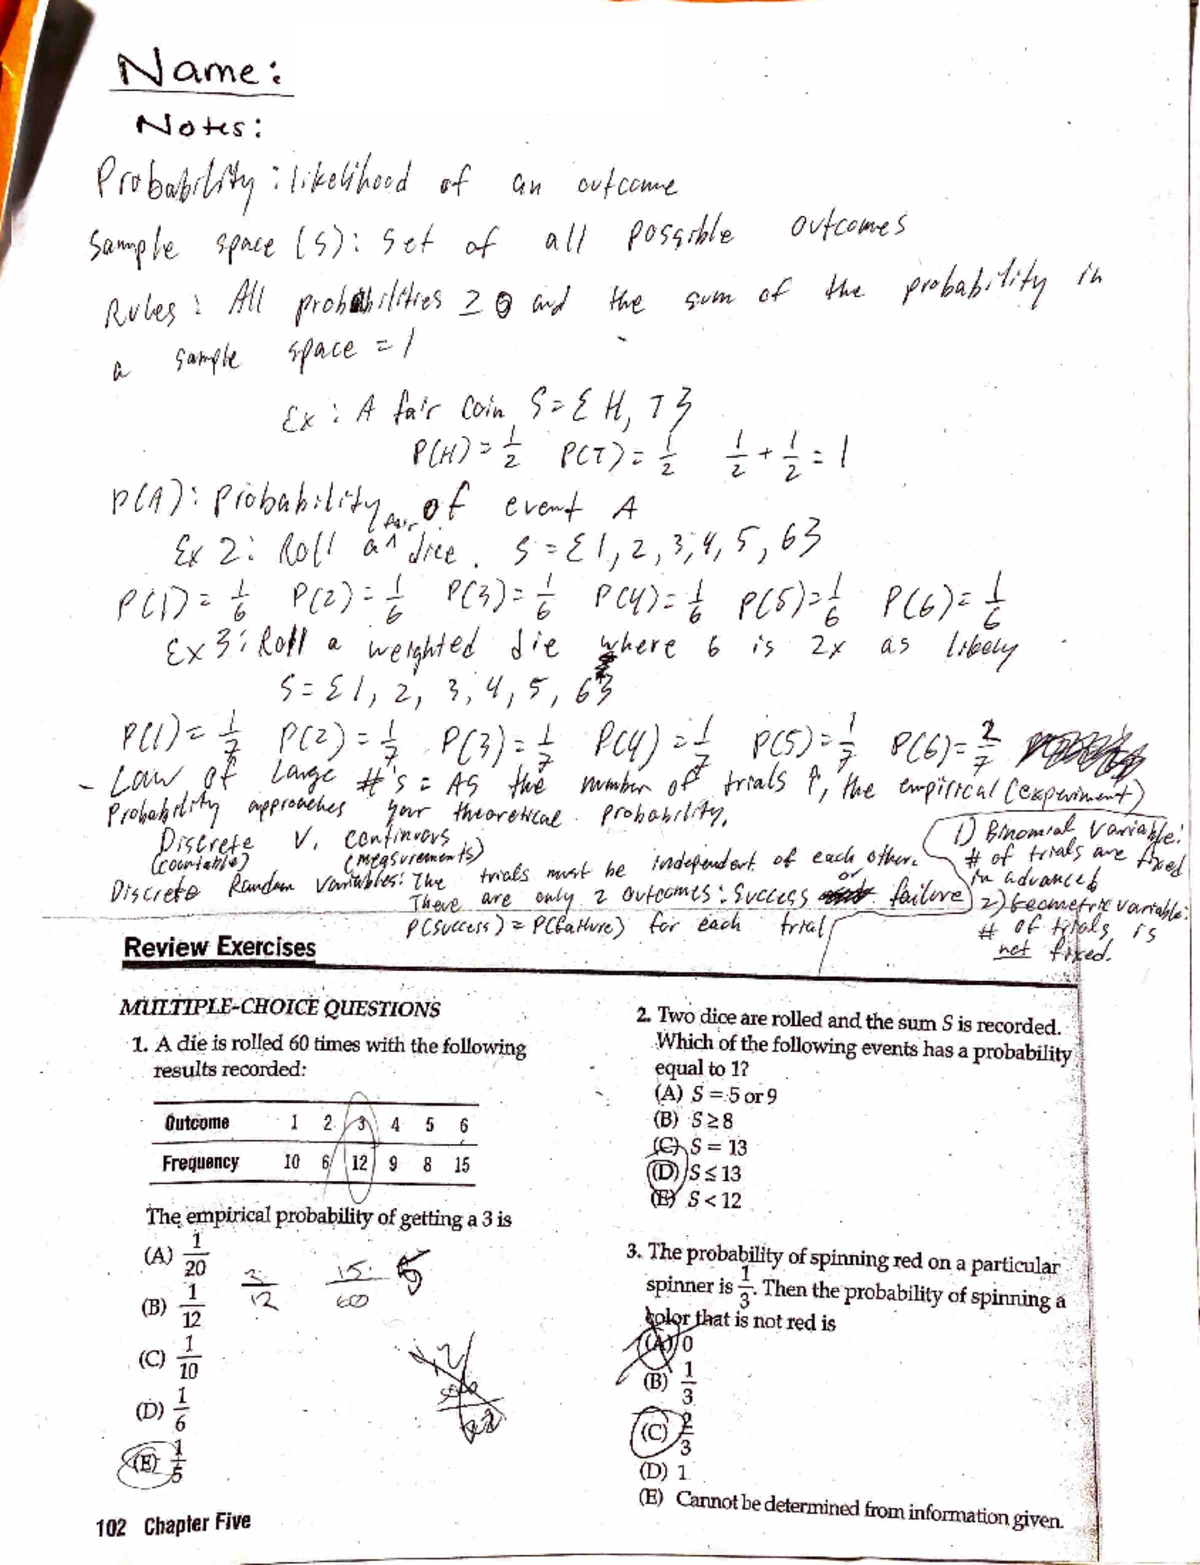 Name:
Notes:
Probability: likelihood of an outcome
Sample space (S): Set of all possible outcomes
Rules: All probabilities ≥ 0 and the sum of the probability in
a sample space = 1
Ex: A fair coin S = { H, T }
P(H) = 1/2 P(T) = 1/2 1/2 + 1/2 = 1
P(A): Probability of event A
Ex 2: Roll a fair dice. S = {1, 2, 3, 4, 5, 6}
P(1) = 1/6 P(2) = 1/6 P(3) = 1/6 P(4) = 1/6 P(5) = 1/6 P(6) = 1/6
Ex 3: Roll a weighted die where 6 is 2x as likely
S = {1, 2, 3, 4, 5, 6}
P(1) = 1/7 P(2) = 1/7 P(3) = 1/7 P(4) = 1/7 P(5) = 1/7 P(6) = 2/7
- Law of Large #'s = As the number of trials ↑, the empirical (experiment)
Probability approaches your theoretical probability.
Discrete v. continuous
(countable) (measurements)
Discrete Random Variables: The trials must be independent of each other.
There are only 2 outcomes: Success or failure
P(success) = P(failure) for each trial
1) Binomial Variable:
# of trials are fixed
in advanced
2) Geometric variable:
# of trials is
not fixed.
Review Exercises
MULTIPLE-CHOICE QUESTIONS
1. A die is rolled 60 times with the following
results recorded:
Outcome 1 2 3 4 5 6
Frequency 10 6 12 9 8 15
The empirical probability of getting a 3 is
(A) 1/20
(B) 1/12
(C) 1/10
(D) 1/6
(E) 1/5
15/60
102 Chapter Five
2. Two dice are rolled and the sum S is recorded.
Which of the following events has a probability
equal to 1?
(A) S = 5 or 9
(B) S ≥ 8
(C) S = 13
(D) S ≤ 13
(E) S < 12
3. The probability of spinning red on a particular
spinner is 1/3. Then the probability of spinning a
color that is not red is
(A) 0
(B) 1/3
(C) 2/3
(D) 1
(E) Cannot be determined from information given.